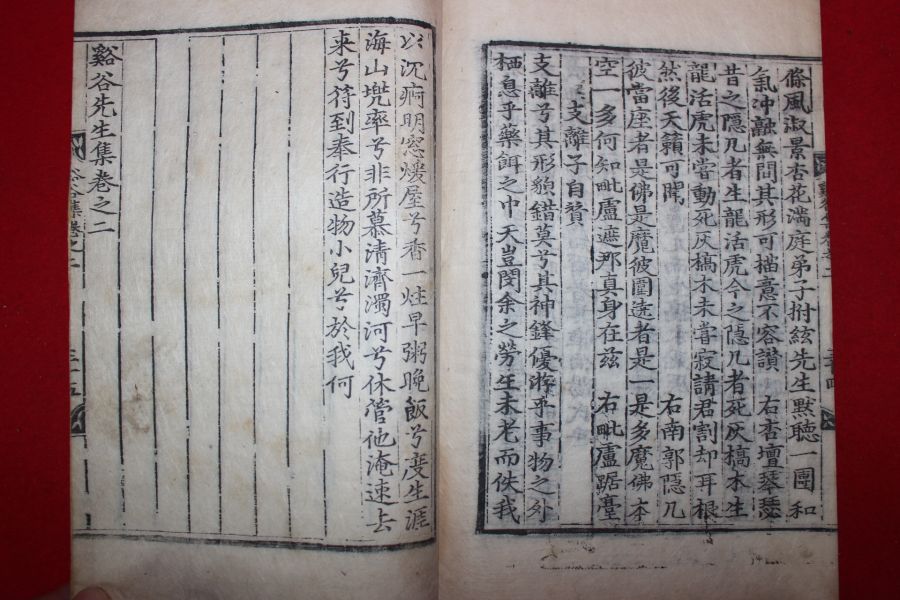 條風淑景杏花滿庭弟子拊絃先生默聽一團和
氣沖融無間其形可描意不容讃 右杏壇琴瑟
昔之隐几者生龍活虎今之隐几者死灰槁木生
龍活虎未嘗動死灰槁木未嘗寂請君割却耳根
然後天籟可聞 右南郭隐几
彼當座者是佛是魔彼圍遶者是一是多魔佛本
空一多何知毗盧遮那真身在玆 右毗廬踞臺
支離子自贊
支離兮其形貌錯莫兮其神鋒優游乎事物之外
栖息乎藥餌之中天豈閔余之勞生未老而佚我
以沉痾明窓煖屋兮香一炷早粥晚飯兮度生涯
海山兜率兮非所慕清濟濁河兮休管他淹速去
来兮符到奉行造物小兒兮於我何
谿谷先生集卷之二
谷集卷之二
三十五
三十四